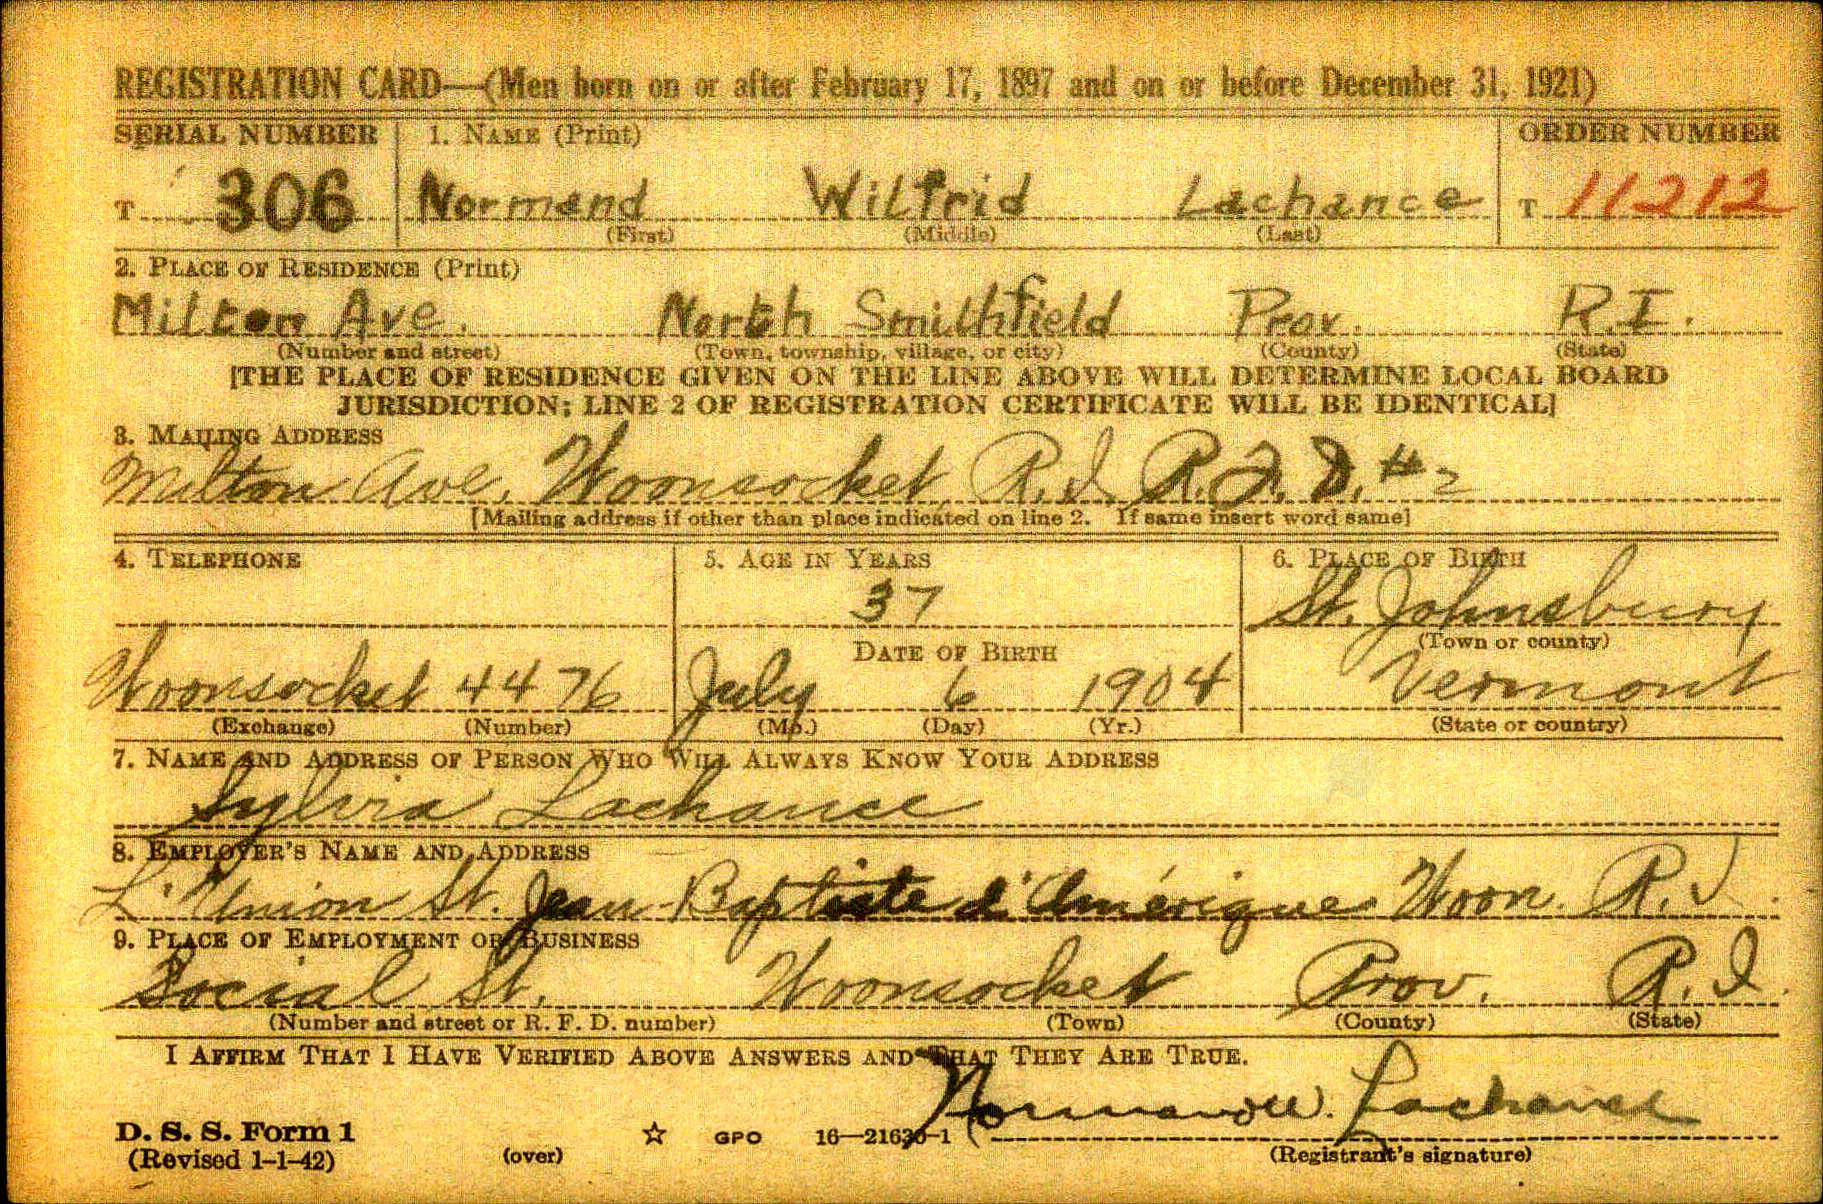 REGISTRATION CARD—(Men born on or after February 17, 1897 and on or before December 31, 1921)
SERIAL NUMBER 1. NAME (Print) ORDER NUMBER
T 306 Normand Wilfrid Lachance T 11212
(First) (Middle) (Last)
2. PLACE OF RESIDENCE (Print)
Milton Ave. North Smithfield Prov. R.I.
(Number and street) (Town, township, village, or city) (County) (State)
[THE PLACE OF RESIDENCE GIVEN ON THE LINE ABOVE WILL DETERMINE LOCAL BOARD
JURISDICTION; LINE 2 OF REGISTRATION CERTIFICATE WILL BE IDENTICAL]
3. MAILING ADDRESS
Milton Ave, Woonsocket, R.I. R.F.D. #2
[Mailing address if other than place indicated on line 2. If same insert word same]
4. TELEPHONE 5. AGE IN YEARS 6. PLACE OF BIRTH
37 St. Johnsbury
DATE OF BIRTH (Town or county)
Woonsocket 4476 July 6 1904 Vermont
(Exchange) (Number) (Mo.) (Day) (Yr.) (State or country)
7. NAME AND ADDRESS OF PERSON WHO WILL ALWAYS KNOW YOUR ADDRESS
Sylvia Lachance
8. EMPLOYER'S NAME AND ADDRESS
L'Union St. Jean-Baptiste d'Amérique Woon. R.I.
9. PLACE OF EMPLOYMENT OR BUSINESS
Social St. Woonsocket Prov. R.I.
(Number and street or R. F. D. number) (Town) (County) (State)
I AFFIRM THAT I HAVE VERIFIED ABOVE ANSWERS AND THAT THEY ARE TRUE.
Normand W. Lachance
D. S. S. Form 1
(Revised 1-1-42) (over) ☆ GPO 16—21630-1 (Registrant's signature)